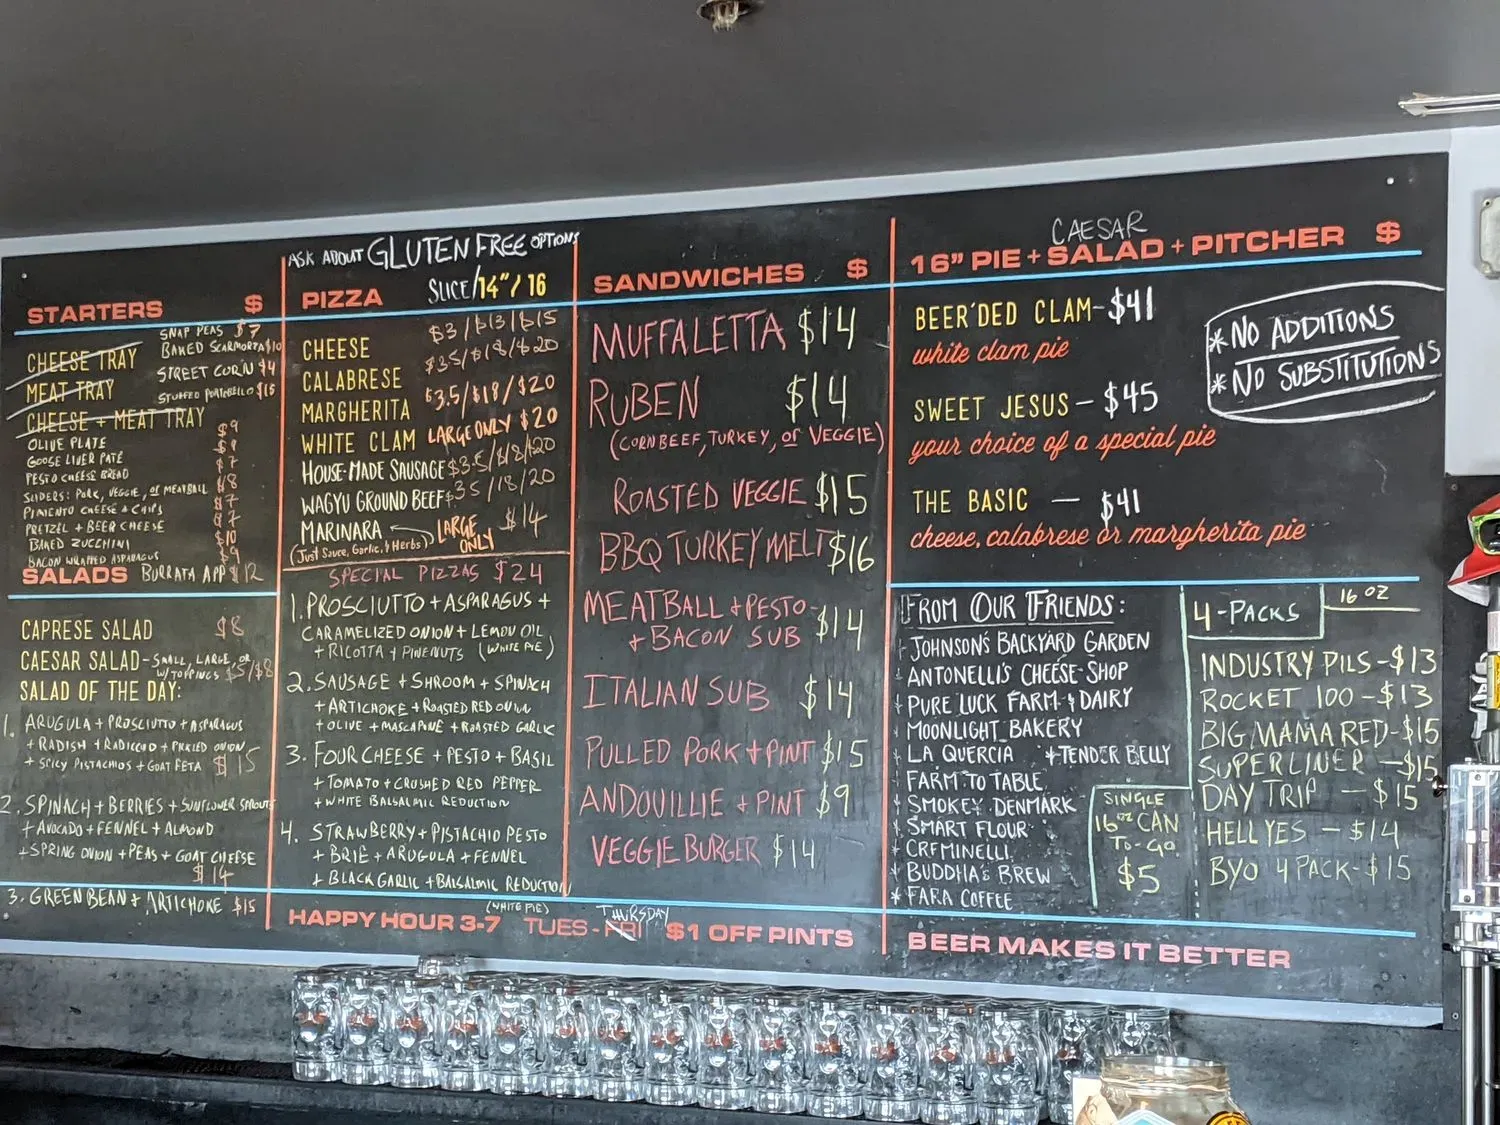 STARTERS $
SNAP PEAS $7
CHEESE TRAY
BAKED SCARMORTA $10
MEAT TRAY
STREET CORN $4
STUFFED PORTABELLO $15
CHEESE + MEAT TRAY
OLIVE PLATE $9
GOOSE LIVER PATE $9
PESTO CHEESE BREAD $7
SLIDERS: PORK, VEGGIE, OR MEATBALL $8
PIMENTO CHEESE & CHIPS $7
PRETZEL + BEER CHEESE $7
BAKED ZUCCHINI $10
BACON WRAPPED ASPARAGUS $9
SALADS BURRATA APP $12
CAPRESE SALAD $8
CAESAR SALAD - SMALL, LARGE, OR
W/TOPPINGS $5/$8
SALAD OF THE DAY:
1. ARUGULA + PROSCIUTTO + ASPARAGUS
+ RADISH + RADICCIO + PICKLED ONION
+ SPICY PISTACHIOS + GOAT FETA $15
2. SPINACH + BERRIES + SUNFLOWER SPROUTS
+ AVOCADO + FENNEL + ALMOND
+ SPRING ONION + PEAS + GOAT CHEESE
$14
3. GREEN BEAN + ARTICHOKE $15
ASK ABOUT GLUTEN FREE OPTIONS
PIZZA SLICE/14"/16
CHEESE $3/$13/$15
CALABRESE $3.5/$18/$20
MARGHERITA $3.5/$18/$20
WHITE CLAM LARGE ONLY $20
HOUSE-MADE SAUSAGE $3.5/$18/$20
WAGYU GROUND BEEF $3.5/18/20
MARINARA LARGE ONLY $14
(Just Sauce, Garlic, & Herbs)
SPECIAL PIZZAS $24
1. PROSCIUTTO + ASPARAGUS +
CARAMELIZED ONION + LEMON OIL
+ RICOTTA + PINENUTS (WHITE PIE)
2. SAUSAGE + SHROOM + SPINACH
+ ARTICHOKE + ROASTED RED ONION
+ OLIVE + MASCAPONE + ROASTED GARLIC
3. FOUR CHEESE + PESTO + BASIL
+ TOMATO + CRUSHED RED PEPPER
+ WHITE BALSALMIC REDUCTION
4. STRAWBERRY + PISTACHIO PESTO
+ BRIE + ARUGULA + FENNEL
+ BLACK GARLIC + BALSALMIC REDUCTION
(WHITE PIE)
HAPPY HOUR 3-7 TUES - FRI THURSDAY $1 OFF PINTS
SANDWICHES $
MUFFALETTA $14
RUBEN $14
(CORNBEEF, TURKEY, or VEGGIE)
ROASTED VEGGIE $15
BBQ TURKEY MELT $16
MEATBALL + PESTO
+ BACON SUB $14
ITALIAN SUB $14
PULLED PORK + PINT $15
ANDOUILLIE + PINT $9
VEGGIE BURGER $14
CAESAR
16" PIE + SALAD + PITCHER $
BEER'DED CLAM - $41
white clam pie
SWEET JESUS - $45
your choice of a special pie
THE BASIC - $41
cheese, calabrese or margherita pie
* NO ADDITIONS
* NO SUBSTITUTIONS
FROM OUR FRIENDS:
* JOHNSON'S BACKYARD GARDEN
* ANTONELLI'S CHEESE SHOP
* PURE LUCK FARM & DAIRY
* MOONLIGHT BAKERY
* LA QUERCIA * TENDER BELLY
* FARM TO TABLE
* SMOKEY DENMARK
* SMART FLOUR
* CREMINELLI
* BUDDHA'S BREW
* FARA COFFEE
SINGLE
16oz CAN
TO-GO
$5
4-PACKS 16 OZ
INDUSTRY PILS - $13
ROCKET 100 - $13
BIG MAMA RED - $15
SUPERLINER - $15
DAY TRIP - $15
HELL YES - $14
BYO 4 PACK - $15
BEER MAKES IT BETTER